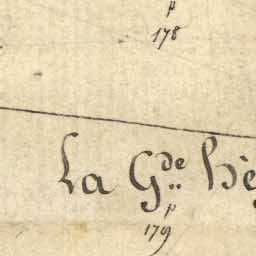 p
178
La G.de Hè
p
179